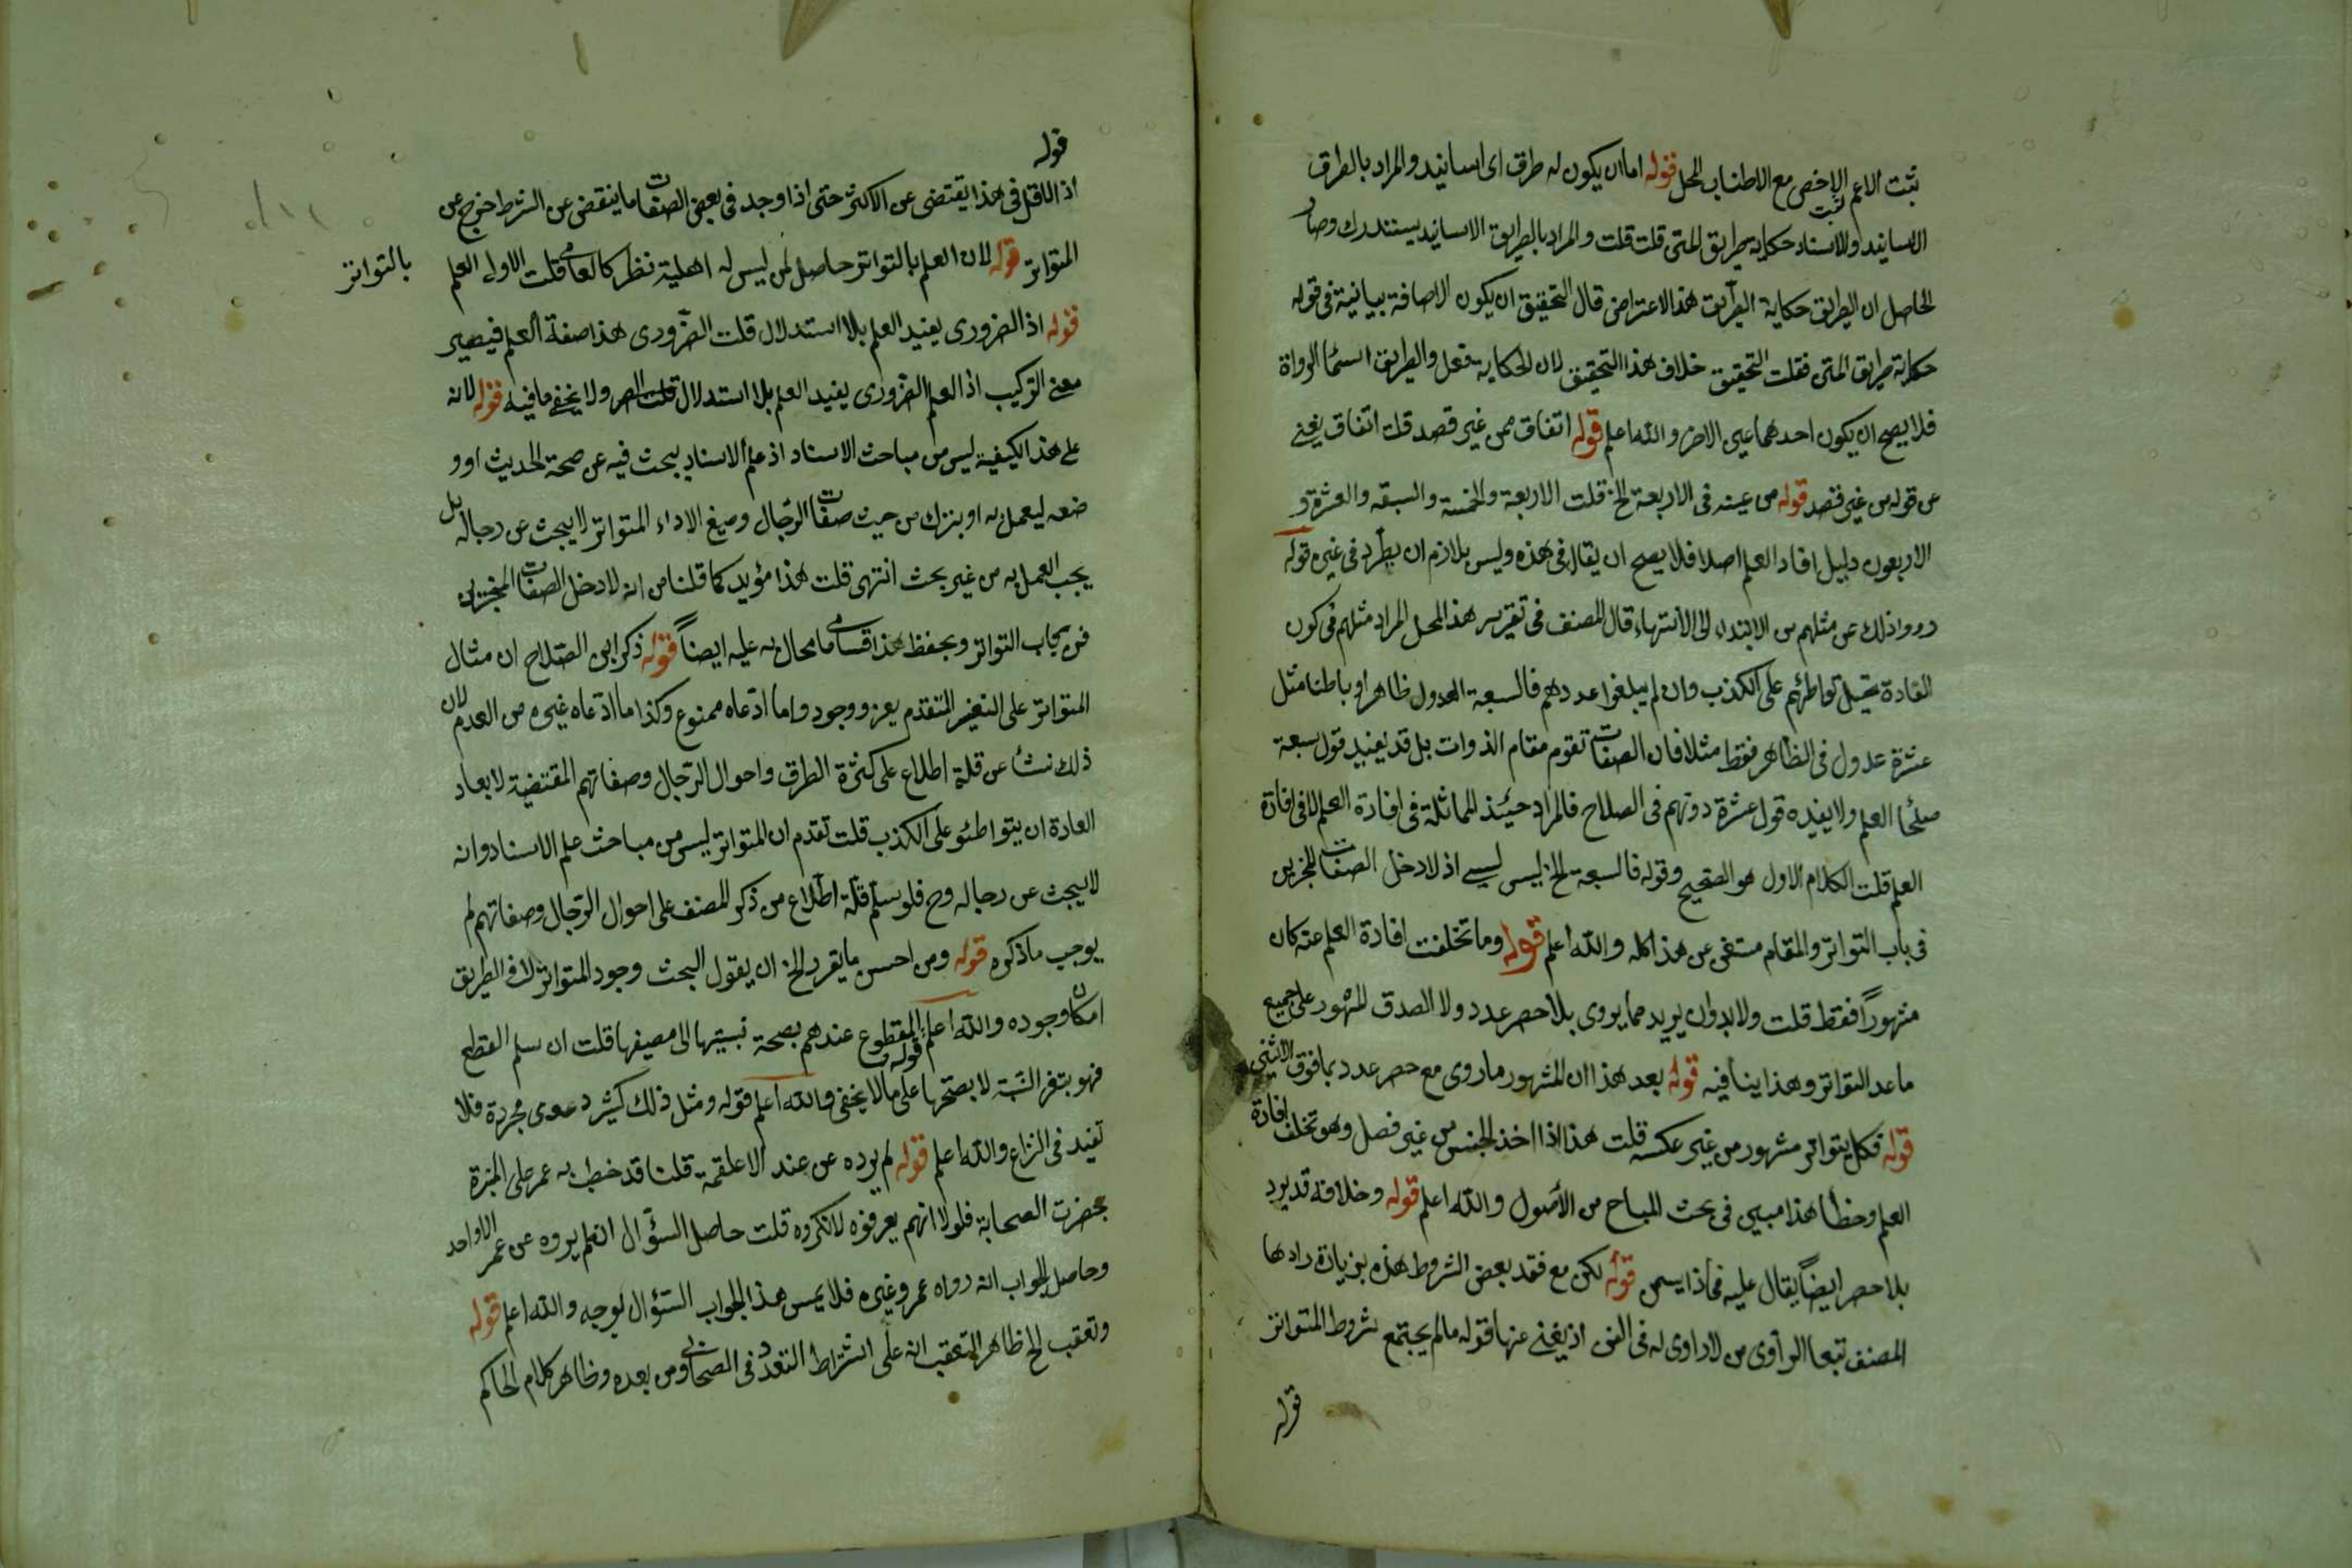 ثبت الاعم ثبت الاخص مع الاطناب المحل قوله اما ان يكون له طرق اى اسانيد والمراد بالطرق
الاسانيد والاسناد حكاية طريق المتن قلت قلت والمراد بالطريق الاسانيد يستدرك وصار
الحاصل ان الطريق حكاية الطريق هذا الاعتراض قال التحقيق ان يكون الاضافة بيانية فى قوله
حكاية طريق المتن فقلت التحقيق خلاف هذا التحقيق لان الحكاية فعل والطريق اسماء الرواة
فلا يصح ان يكون احدهما عين الاخر والله اعلم قوله اتفاق من غير قصد قلت اتفاق يغنى
عن قوله من غير قصد قوله من عينه فى الاربعة الخ قلت الاربعة والخمسة والسبعة والعشرة و
الاربعون دليل افاد العلم اصلا فلا يصح ان يقال فى هذه وليس بلازم ان يطرد فى غيره قوله
رووا ذلك عن مثلهم من الابتداء الى الانتهاء قال المصنف فى تقرير هذا المحل المراد مثلهم فى كون
العادة تحيل تواطئهم على الكذب وان لم يبلغوا عددهم فالسبعة العدول ظاهرا وباطنا مثل
عشرة عدول فى الظاهر فقط مثلا فان الصفات تقوم مقام الذوات بل قد يفيد قول سبعة
صلحا العلم ولا يفيده قول عشرة دونهم فى الصلاح فالمراد حينئذ المماثلة فى افادة العلم لا فى افادة
العلم قلت الكلام الاول هو الصحيح وقوله فالسبعة الخ ليس اذ لا دخل الصفات المخبرين
فى باب التواتر والمقام مستغن عن هذا كله والله اعلم قوله وما تخلفت افادة العلم عنه كان
مشهورا فقط قلت ولا بد وان يريد مما يروى بلا حصر عدد ولا الصدق المشهور على جميع
ما عد التواتر وهذا ينافيه قوله بعد هذا ان المشهور ما روى مع حصر عدد بما فوق الاثنين
قوله فكل متواتر مشهور من غير عكس قلت هذا اذا اخذ الجنس من غير فصل وهو تخلف افادة
العلم وخطأ هذا مبين فى بحث المباح من الأصول والله اعلم قوله وخلافه قد يرد
بلا حصر ايضاً يقال عليه فماذا يسمى قوله لكن مع فقد بعض الشروط هذه بزيادة زادها
المصنف تبعا الرأوى من لا راوى له فى الفن اذ يغنى عنها قوله ما لم يجتمع شروط المتواتر
قوله
قوله
اذ الاقل فى هذا يقتضى عن الاكثر حتى اذا وجد فى بعض الصفات ما ينقض عن الشرط خرج عن
المتواتر قوله لان العلم بالتواتر حاصل لمن ليس له اهلية نظر كالعامى قلت الاولى العلم
بالتواتر
قوله اذ الضرورى يفيد العلم بلا استدلال قلت الضرورى هذا صفة العلم فيصير
معنى التركيب اذ العلم الضرورى يفيد العلم بلا استدلال ولا يخفى ما فيه قوله لانه
على هذا الكيفية ليس من مباحث الاسناد اذ علم الاسناد يبحث فيه عن صحة الحديث او و
ضعه ليعمل به او يترك من حيث صفات الرجال وصيغ الاداء المتواتر لا يبحث عن رجاله بل
يجب العمل به من غير بحث انتهى قلت هذا مؤيد كما قلنا من انه لا دخل الصفات المخبرين
فى باب التواتر ويحفظ هذا ما محال به عليه ايضاً قوله ذكر ابن الصلاح ان مثال
المتواتر على التفسير المتقدم يعز ووجود واما ادعاه ممنوع وكذا ما ادعاه غيره من العدم لان
ذلك نشأ عن قلة اطلاع على كثرة الطرق واحوال الرجال وصفاتهم المقتضية لابعاد
العادة ان يتواطئو على الكذب قلت تقدم ان المتواتر ليس من مباحث علم الاسناد وانه
لا يبحث عن رجاله وح فلو سلم قلة اطلاع من ذكر المصنف على احوال الرجال وصفاتهم لم
يوجب ما ذكره قوله ومن احسن ما يقرر الخ ان يقول البحث وجود المتواتر لا فى الطريق
امكان وجوده والله اعلم قوله المقطوع عندهم بصحة نسبتها الى مصنفها قلت ان سلم القطع
فهو بنفس النسبة لا بصحتها على ما لا يخفى والله اعلم قوله ومثل ذلك كثير دعوى مجردة فلا
تفيد فى النزاع والله اعلم قوله لم يرده عن عند الا علقمة قلنا قد خطب به عمر على المنبرة
بحضرت الصحابة فلولا انهم يعرفوه لانكروه قلت حاصل السؤال انه لم يروه عن عمر الا واحد
وحاصل الجواب انه رواه عمر وغيره فلا يمس هذا الجواب السؤال بوجه والله اعلم قوله
وتعقب الخ ظاهر التعقب انه على اشتراط التعدد فى الصحابى ومن بعده وظاهر كلام الحاكم